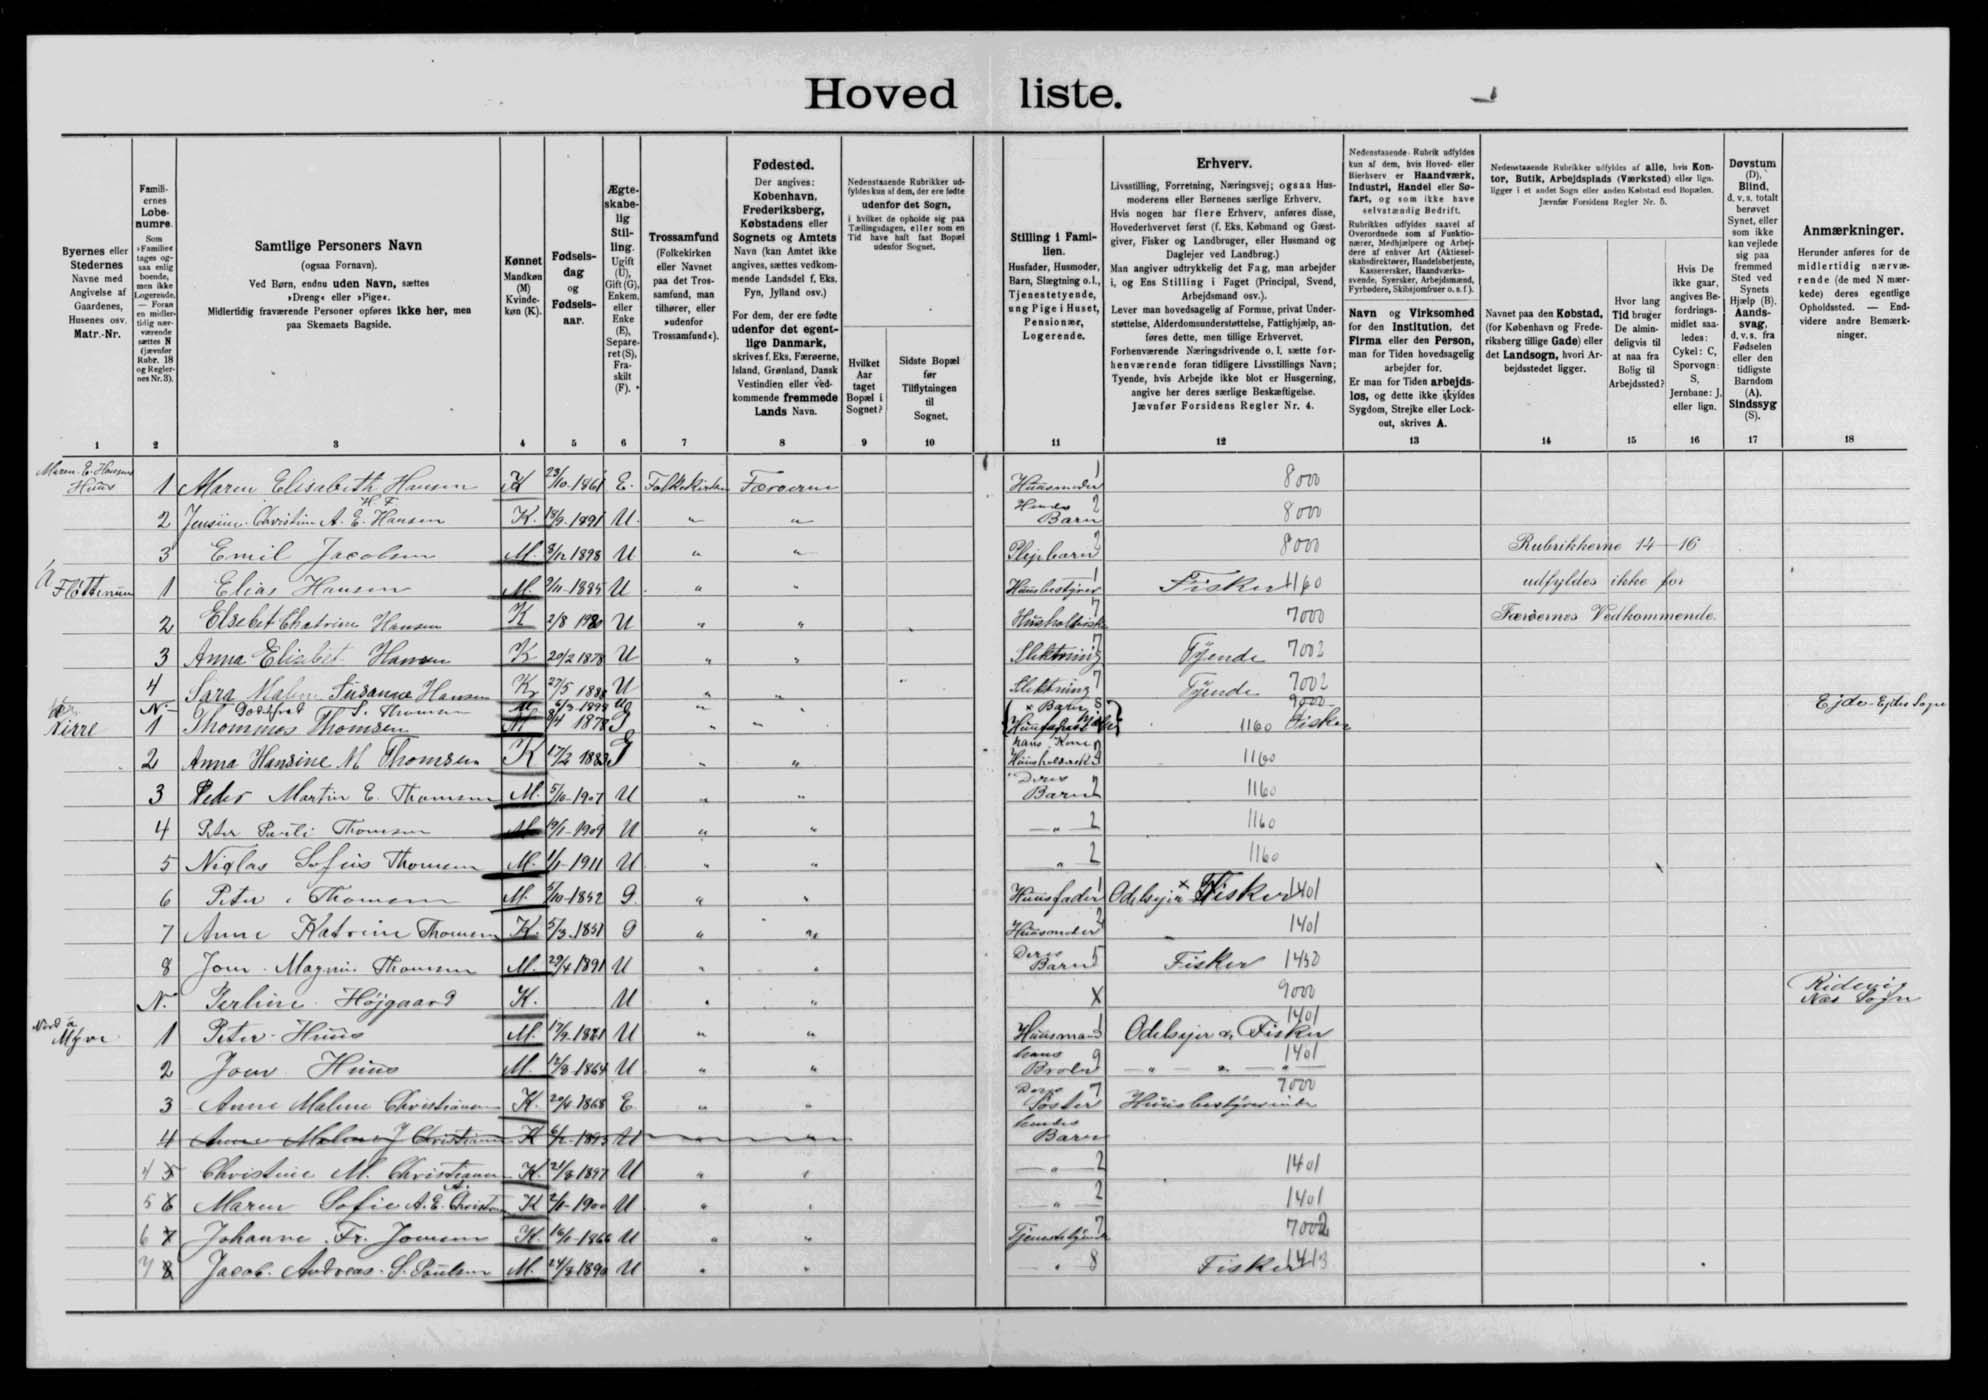 Hovedliste.
Byernes eller Stedernes Navne med Angivelse af Gaardenes, Husenes osv. Matr.-Nr.
Familiernes Lobenumre. Som »Familie« tages ogsaa enlig boende, men ikke Logerende. — Foran en midlertidig nærværende sættes N (jævnfør Rubr. 18 og Reglernes Nr. 3).
Samtlige Personers Navn (ogsaa Fornavn). Ved Børn, endnu uden Navn, sættes »Dreng« eller »Pige«. Midlertidig fraværende Personer opføres ikke her, men paa Skemaets Bagside.
Kønnet Mandkøn (M) Kvindekøn (K).
Fødselsdag og Fødselsaar.
Ægteskabelig Stilling. Ugift (U), Gift (G), Enkem. eller Enke (E), Separeret (S), Fraskilt (F).
Trossamfund (Folkekirken eller Navnet paa det Trossamfund, man tilhører, eller »udenfor Trossamfund«).
Fødested. Der angives: København, Frederiksberg, Købstadens eller Sognets og Amtets Navn (kan Amtet ikke angives, sættes vedkommende Landsdel f. Eks. Fyn, Jylland osv.) For dem, der ere fødte udenfor det egentlige Danmark, skrives f. Eks. Færøerne, Island, Grønland, Dansk Vestindien eller vedkommende fremmede Lands Navn.
Nedenstaaende Rubrikker udfyldes kun af dem, der ere fødte udenfor det Sogn, i hvilket de opholde sig paa Tællingsdagen, eller som en Tid have haft fast Bopæl udenfor Sognet.
Hvilket Aar taget Bopæl i Sognet?
Sidste Bopæl før Tilflytningen til Sognet.
Stilling i Familien. Husfader, Husmoder, Barn, Slægtning o.l., Tjenestetyende, ung Pige i Huset, Pensionær, Logerende.
Erhverv. Livsstilling, Forretning, Næringsvej; ogsaa Husmoderens eller Børnenes særlige Erhverv. Hvis nogen har flere Erhverv, anføres disse, Hovederhvervet først (f. Eks. Købmand og Gæstgiver, Fisker og Landbruger, eller Husmand og Daglejer ved Landbrug.) Man angiver udtrykkelig det Fag, man arbejder i, og Ens Stilling i Faget (Principal, Svend, Arbejdsmand osv.). Lever man hovedsagelig af Formue, privat Understøttelse, Alderdomsunderstøttelse, Fattighjælp, anføres dette, men tillige Erhvervet. Forhenværende Næringsdrivende o. l. sætte forhenværende foran tidligere Livsstillings Navn; Tyende, hvis Arbejde ikke blot er Husgerning, angive her deres særlige Beskæftigelse. Jævnfør Forsidens Regler Nr. 4.
Nedenstaaende Rubrik udfyldes kun af dem, hvis Hoved- eller Bierhverv er Haandværk, Industri, Handel eller Søfart, og som ikke have selvstændig Bedrift. Rubrikken udfyldes saavel af Overordnede som af Funktionærer, Medhjælpere og Arbejdere af enhver Art (Aktieselskabsdirektører, Handelsbetjente, Kasserersker, Haandværkssvende, Syersker, Arbejdsmænd, Fyrbødere, Skibsjomfruer o. s. f.).
Navn og Virksomhed for den Institution, det Firma eller den Person, man for Tiden hovedsagelig arbejder for. Er man for Tiden arbejdsløs, og dette ikke skyldes Sygdom, Strejke eller Lockout, skrives A.
Nedenstaaende Rubrikker udfyldes af alle, hvis Kontor, Butik, Arbejdsplads (Værksted) eller lign. ligger i et andet Sogn eller anden Købstad end Bopælen. Jævnfør Forsidens Regler Nr. 5.
Navnet paa den Købstad, (for København og Frederiksberg tillige Gade) eller det Landsogn, hvori Arbejdsstedet ligger.
Hvor lang Tid bruger De almindeligvis til at naa fra Bolig til Arbejdssted?
Hvis De ikke gaar, angives Befordringsmidlet saaledes: Cykel: C, Sporvogn: S, Jernbane: J, eller lign.
Døvstum (D), Blind, d. v. s. totalt berøvet Synet, eller som ikke kan vejlede sig paa fremmed Sted ved Synets Hjælp (B). Aandssvag, d. v. s. fra Fødselen eller den tidligste Barndom (A). Sindssyg (S).
Anmærkninger. Herunder anføres for de midlertidig nærværende (de med N mærkede) deres egentlige Opholdssted. — Endvidere andre Bemærkninger.
1 2 3 4 5 6 7 8 9 10 11 12 13 14 15 16 17 18
Maren E. Hansens Huus 1 Maren Elisabeth Hansen K 23/10-1861 E. Folkekirken Færøerne Huusmoder 1 8000
2 Jensine Christine A. E. H F Hansen K. 18/9-1891 U. " " Hendes Barn 2 8000
3 Emil Jacobsen M. 8/12 1898 U " " Plejebarn 2 8000 Rubrikkerne 14—16
á Fløttinum 1 Elias Hansen M. 9/11-1885 U " " Huusbestyrer 1 Fisker 1160 udfyldes ikke for
2 Elsebet Chatrine Hansen K 2/8 1980 U " " Husholderske 7 7000 Færøernes Vedkommende.
3 Anna Elisabet Hansen K 20/2 1878 U " " Slektning 7 Tyende 7002
4 Sara Malene Susanna Hansen K 27/5 1888 U " " Slektning 7 Tyende 7002
N.— S. Thomsen M 6/3-1899 U " " x Barn 8 9000 Ejde - Ejdes Sogn
Nirre 1 Thommes Thomsen M 3/4 1878 G " " Huusfader 1160 Fisker
2 Anna Hansine M Thomsen K 17/2 1883 G " " hans Kone Huusholderske 1160
3 Peder Martin E. Thomsen M. 5/10-1907 U " " Deres Barn 2 1160
4 Peter Pauli Thomsen M 19/1-1909 U " " —"— 2 1160
5 Niclas Sofus Thomsen M. 1/1-1911 U " " " 2 1160
6 Peter Thomsen M. 5/10-1852 G " " Huusfader 1 Odelsejer x Fisker 1401
7 Anne Katrine Thomsen K. 5/3-1851 G " " Huusmoder 2 1401
8 Joen Magnus Thomsen M. 29/4 1891 U " " Deres Barn 5 Fisker 1450
N. Jerline Højgaard K. U " " X 9000 Ridevig Næs Sogn
Nord á Mýre 1 Peter Huus M. 17/9-1861 U " " Huusmand 1 Odelsejer & Fisker 1401
2 Joen Huus M. 12/8-1864 U " " hans Broder 9 —"— " —"— 1401
3 Anne Malene Christiansen K. 20/4-1868 E " " Deres Søster 7 Huusbestyrerinde 7000
4 Anne Malene J Christiansen K 6/2-1895 U hendes Barn
4 5 Christine M. Christiansen K. 21/8 1897 U " " —"— 2 1401
5 6 Maren Sofie A. E. Christiansen K 2/11-1900 U " " —"— 2 1401
6 7 Johanne Fr. Joensen K. 16/1-1866 U " " Tjenestetyende 7 7002
7 8 Jacob Andreas S. Poulsen M. 24/8 1890 U " " —"— 8 Fisker 1413